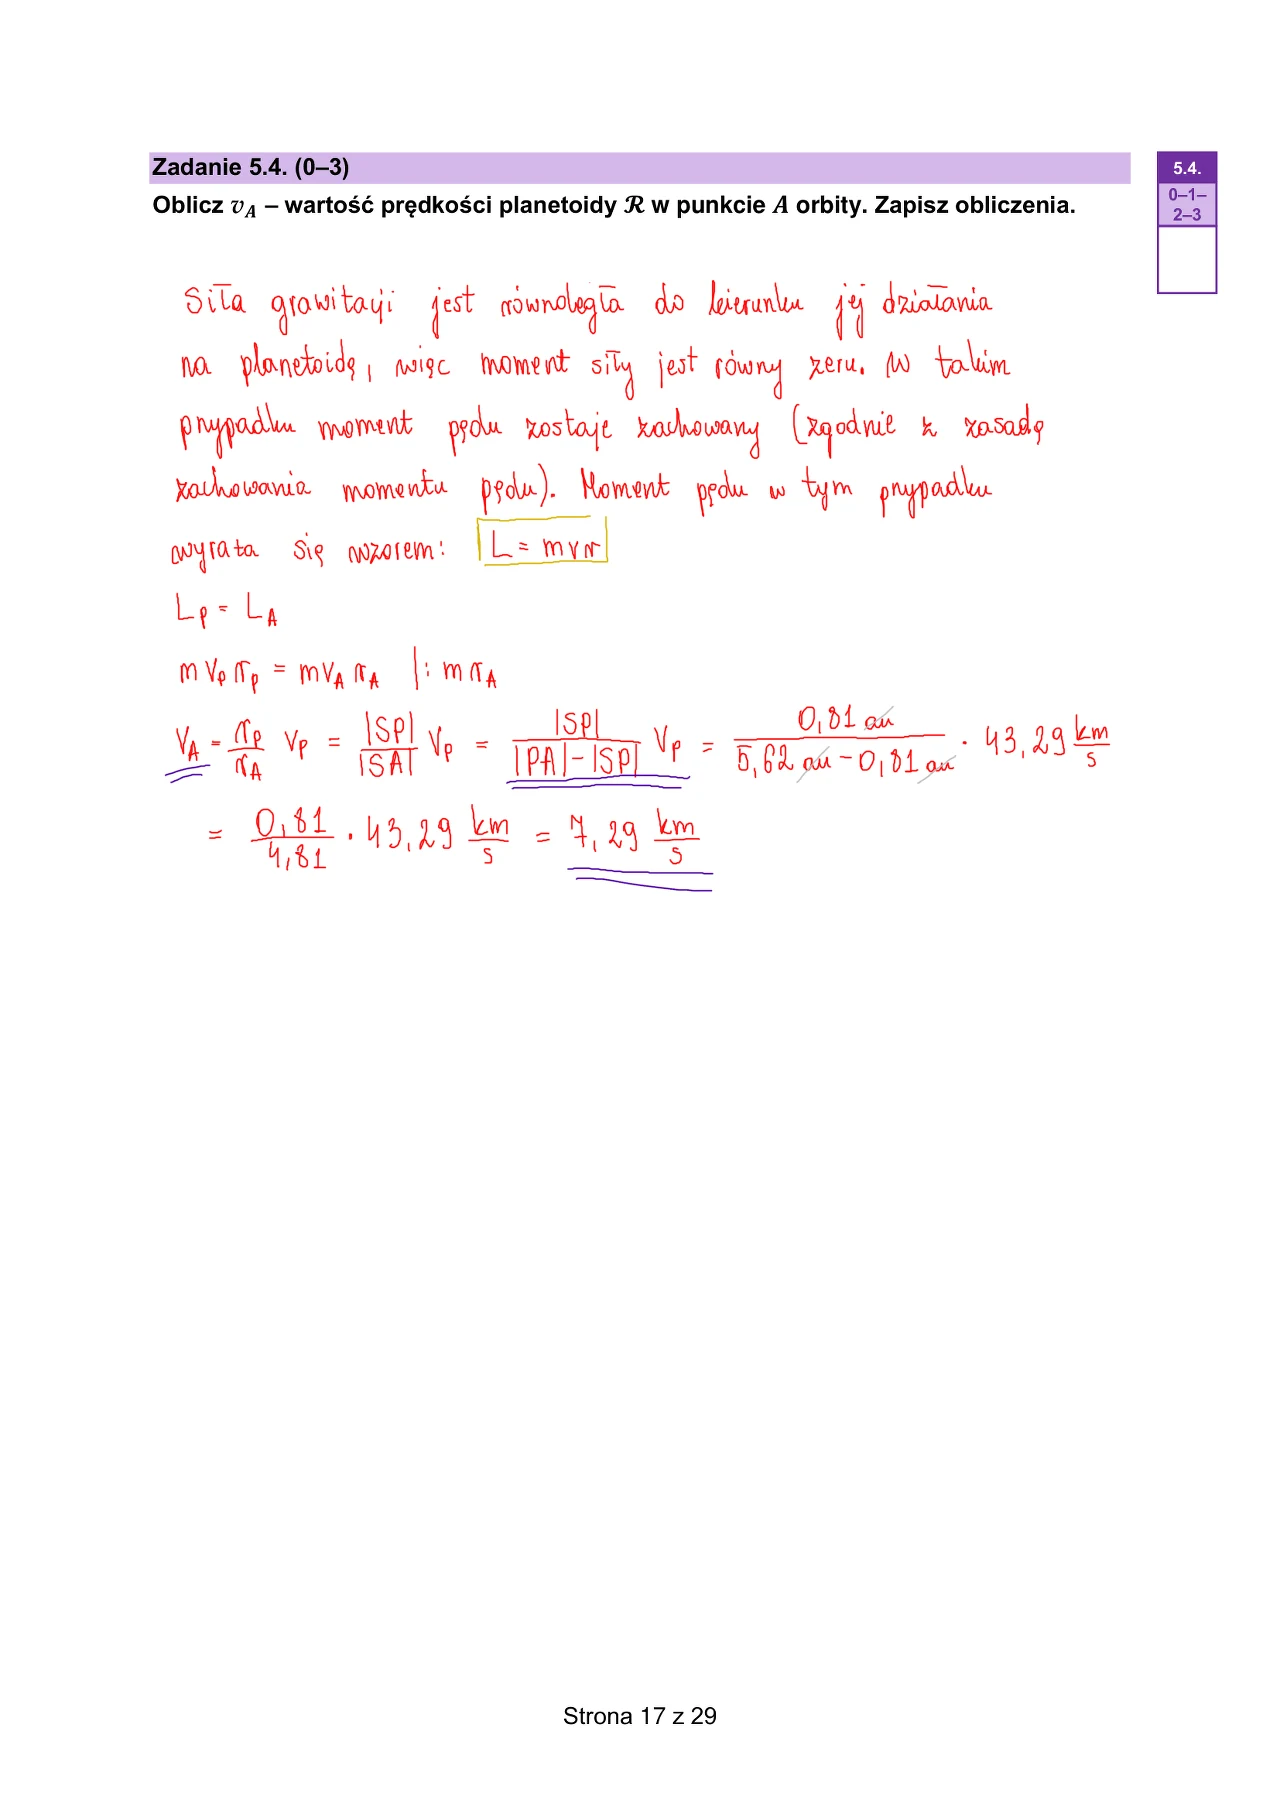 Zadanie 5.4. (0–3)
5.4.
0–1–
2–3
Oblicz v_A – wartość prędkości planetoidy ℛ w punkcie A orbity. Zapisz obliczenia.
Siła grawitacji jest równoległa do kierunku jej działania
na planetoidę, więc moment siły jest równy zeru. W takim
przypadku moment pędu zostaje zachowany (zgodnie z zasadą
zachowania momentu pędu). Moment pędu w tym przypadku
wyraża się wzorem: L = mvr
L_P = L_A
m v_P r_P = m v_A r_A |: m r_A
v_A = r_P/r_A v_P = |SP|/|SA| v_P = |SP|/(|PA|-|SP|) v_P = 0,81 au/(5,62 au - 0,81 au) · 43,29 km/s
= 0,81/4,81 · 43,29 km/s = 7,29 km/s
Strona 17 z 29